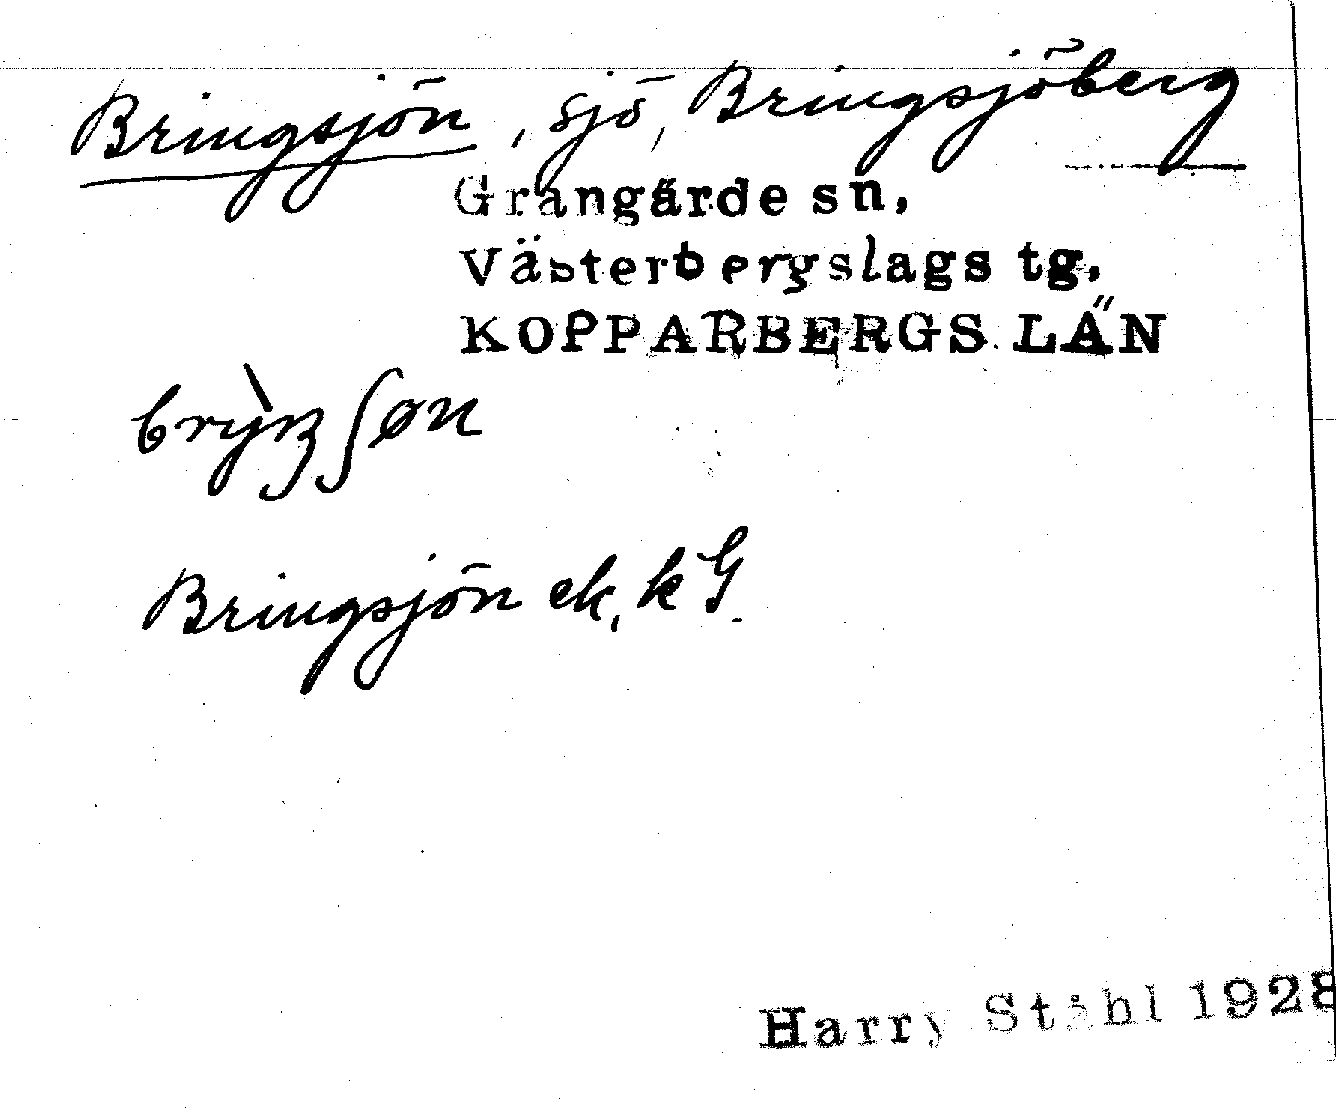 Bringsjön, sjö, Bringsjöberg
Grangärde sn,
Västerbergslags tg.
KOPPARBERGS LÄN
Bringsjön ek, k G.
Harry Ståhl 1928